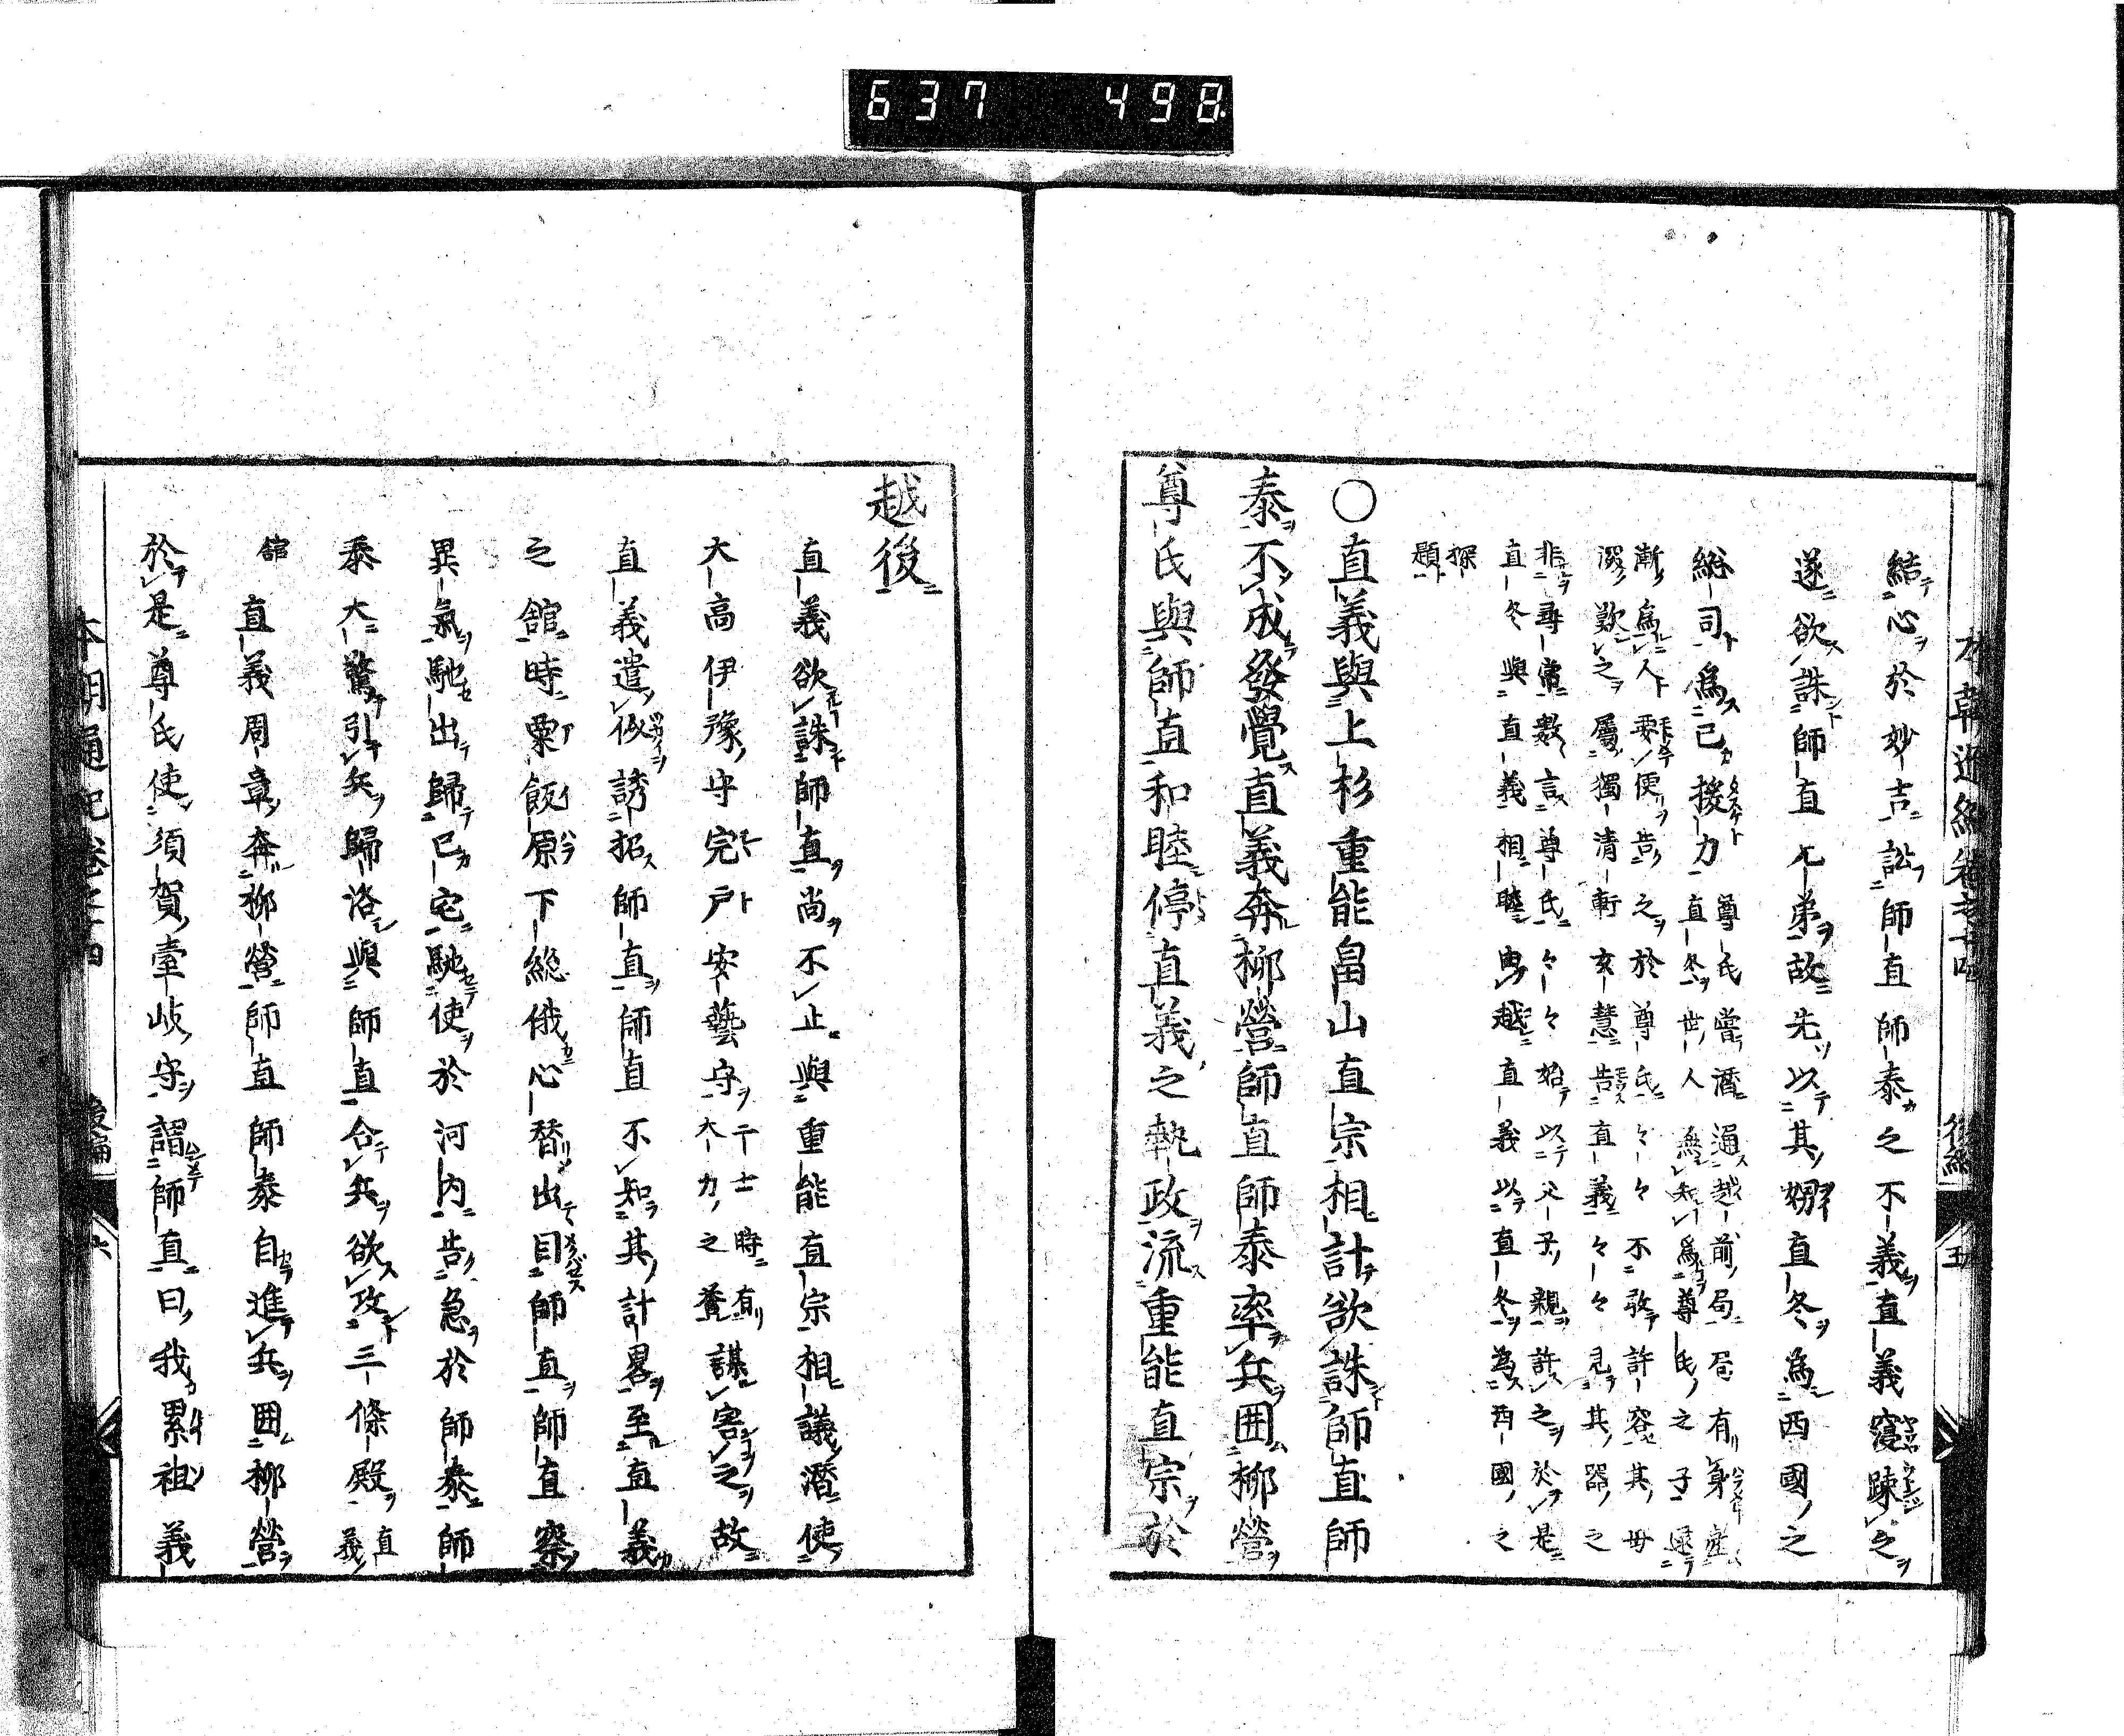 637 498
結心於妙吉訟師直師泰之不義直義窃疎之
遂欲誅師直兄弟故先以其甥直冬爲西國之
総司爲己援力
尊氏嘗潛通越前局局有身産
直冬世人無知爲尊氏之子
漸爲人委便告之於尊氏々々不敢許容其母
深歎之屬獨清軒玄慧告直義々々見其器之
非尋常數言尊氏々々始以父子親許之於是
直冬與直義相睦由越直義以直冬爲西國之
探
題
○直義與上杉重能畠山直宗相計欲誅師直師
泰不成發覺直義奔柳營師直師泰率兵囲柳營
尊氏與師直和睦停直義之執政流重能直宗於
越後
直義欲誅師直尚不止與重能直宗相議潛使
大高伊豫守完戸安藝守
二士時有
大力之養
謀害之故
直義遣价誘招師直師直不知其計畧至直義
之舘時粟飯原下総俄心替出目師直師直察
異氣馳出歸己宅馳使於河内告急於師泰師
泰大驚引兵歸洛與師直合兵欲攻三條殿
直
義
舘
直義周章奔柳營師直師泰自進兵囲柳營
於是尊氏使須賀壹岐守謂師直曰我累祖義
本朝通紀卷之十四
後編
六
五